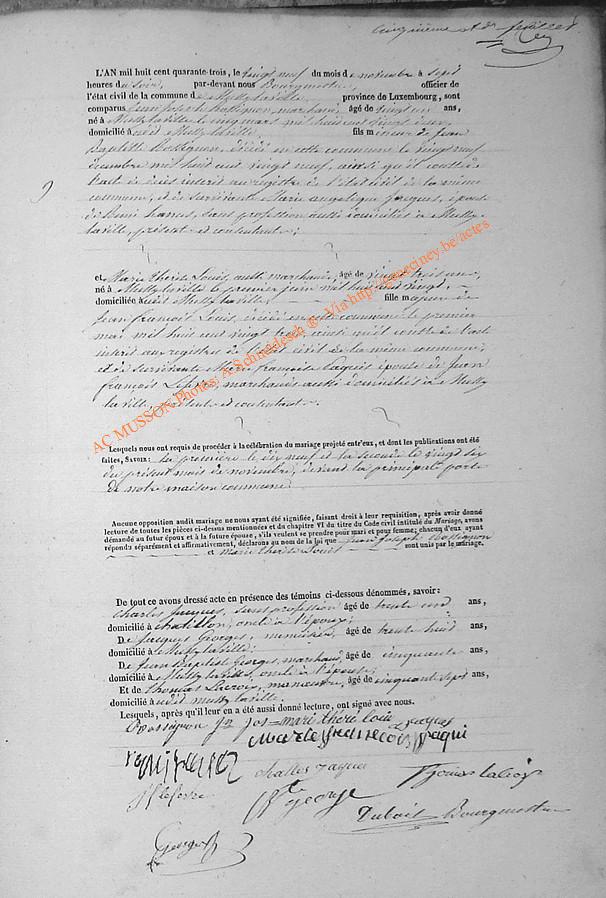 cinquième et dr feuillet
L'AN mil huit cent quarante-trois, le vingt neuf du mois de novembre à sept
heures du soir, par-devant nous Bourgmestre officier de
l'état civil de la commune de Mussy-la-ville, province de Luxembourg, sont
comparus Jean Joseph Rossignon, marchand, âgé de vingt un ans,
né à Mussy-la-ville le cinq mars mil huit cent vingt deux
domicilié audit Mussy-la-ville, fils mineur de Jean
Baptiste Rossignon, décédé en cette commune le vingt neuf
décembre mil huit cent vingt neuf, ainsi qu'il conste de
l'acte de décès inscrit au registre de l'état civil de la même
commune, et de survivante Marie angelique Jacques, épouse
de Remi hanus, sans profession aussi domiciliés à Mussy-
la-ville, présents et consentants;
et Marie Thérèse Louis, aussi marchande, âgée de vingt trois ans,
né à Mussy-la-ville le premier juin mil huit cent vingt,
domiciliée audit Mussy-la-ville, fille majeure de
Jean François Louis, décédé en cette commune le premier
mai mil huit cent vingt trois, ainsi qu'il conste de l'acte
inscrit aux registres de l'état civil de la même commune,
et de survivante Marie françoise Jaques épouse de Jean
françois Lefevre, marchands aussi domiciliés à Mussy-
la-ville, présents et consentants.
Lesquels nous ont requis de procéder à la célébration du mariage projeté entr'eux, et dont les publications ont été
faites, SAVOIR: la première le dix neuf et la seconde le vingt six
du présent mois de novembre, devant la principale porte
de notre maison commune;
Aucune opposition audit mariage ne nous ayant été signifiée, faisant droit à leur requisition, après avoir donné
lecture de toutes les pièces ci-dessus mentionnées et du chapitre VI du titre du Code civil intitulé du Mariage, avons
demandé au futur époux et à la future épouse, s'ils veulent se prendre pour mari et pour femme; chacun d'eux ayant
répondu séparément et affirmativement, déclarons au nom de la loi que Jean Joseph Rossignon
et Marie Thérèse Louis sont unis par le mariage.
De tout ce avons dressé acte en présence des témoins ci-dessous dénommés, savoir:
Charles Jacques, sans profession âgé de trente un ans,
domicilié à chatillon, oncle à l'époux;
De Jacques Georges, menuisier, âgé de trente huit ans,
domicilié à Mussy-la-ville;
De Jean Baptiste Georges, marchand, âgé de cinquante ans,
domicilié à Mussy-la-ville, oncle à l'épouse;
Et de thomas Lacroix, manoeuvre, âgé de cinquante sept ans,
domicilié audit mussy-la-ville.
Lesquels, après qu'il leur en a été aussi donné lecture, ont signé avec nous.
Rossignon Jn jos= mari théré louis jacques
Marie franscois jaqui
charles jaques
jf lefevre
George
thomas lacroix
Dubois Bourgmestre
George
AC MUSSON Photos: A Schmidesch ® - Via http://geneciney.be/actes